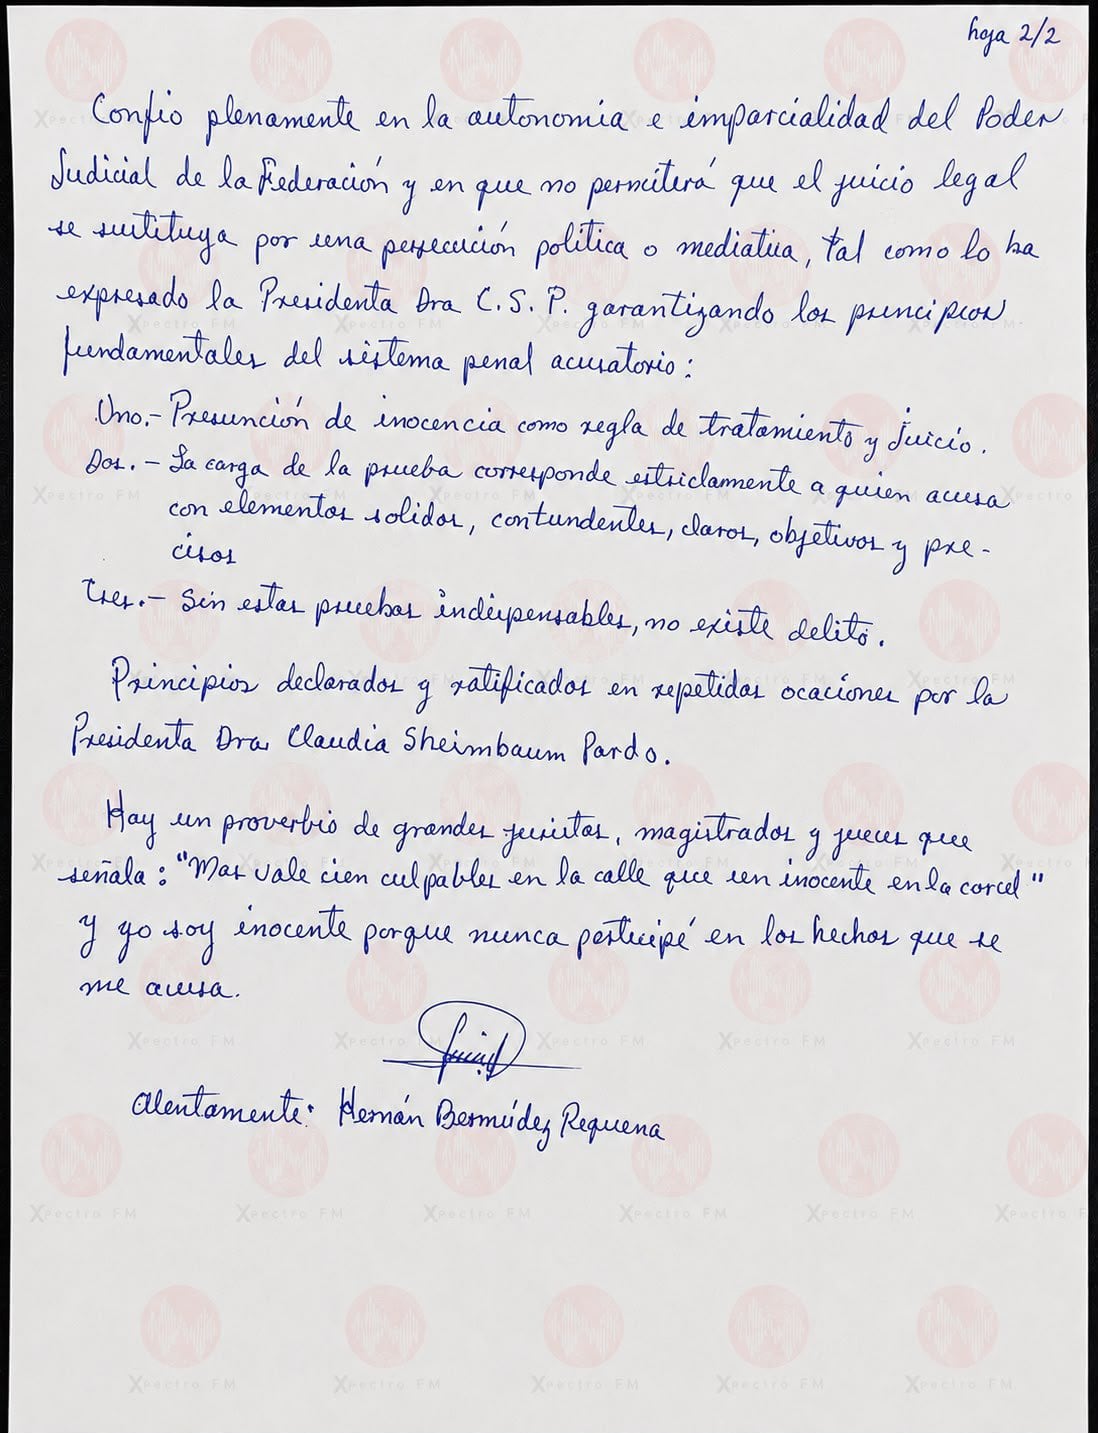 hoja 2/2
Confío plenamente en la autonomía e imparcialidad del Poder
Judicial de la Federación y en que no permiterá que el juicio legal
se sustituya por una persecución política o mediatica, tal como lo ha
expresado la Presidenta Dra C. S. P. garantizando los principios
fundamentales del sistema penal acusatorio:
Uno.- Presunción de inocencia como regla de tratamiento y juicio.
Dos.- La carga de la prueba corresponde estrictamente a quien acusa
con elementos solidos, contundentes, claros, objetivos y pre-
cisos
Tres.- Sin estas pruebas indispensables, no existe delito.
Principios declarados y ratificados en repetidas ocaciones por la
Presidenta Dra Claudia Sheimbaum Pardo.
Hay un proverbio de grandes juristas, magistrados y jueces que
señala: "Mas vale cien culpables en la calle que un inocente en la carcel"
y yo soy inocente porque nunca participé en los hechos que se
me acusa.
Atentamente: Hernán Bermúdez Requena
Xpectro FM